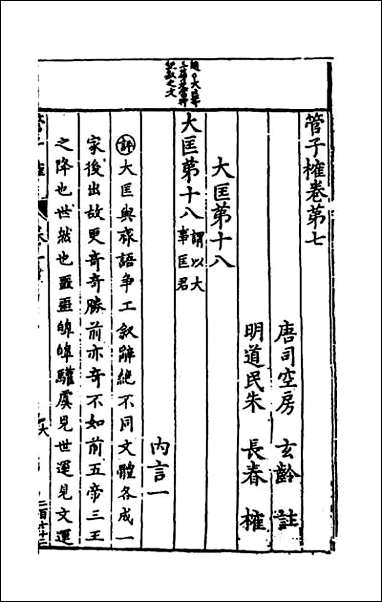 管子榷卷第七
唐司空房　玄齡　註
明道民朱　長春　榷
大匡第十八
內言一
大匡第十八謂以大事匡君
評大匡與齊語爭工叙辭絕不同文體各成一
家後出故更奇奇勝前亦奇不如前五帝三王
之降也世然也噩噩皥皥驩虞見世運見文運